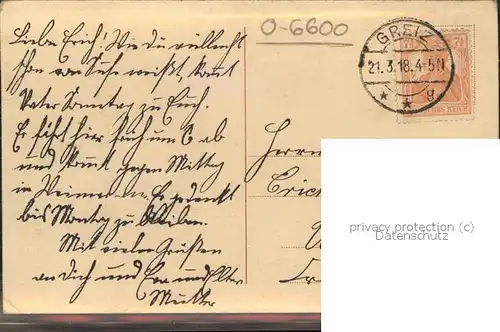 O-6600
GREIZ
21.3.18.4-5N
* * g
Liebe Erich! Wie Du vielleicht
schon von Suse weißt, kommt
Vater Sonntag zu Euch.
Er fährt hier früh um 6 ab
und kommt gegen Mittag
in Weimar an. Er gedenkt
bis Montag zu bleiben.
Mit vielen Grüßen
an Dich und
Mutter
Herrn
Erich
privacy protection (c)
Datenschutz